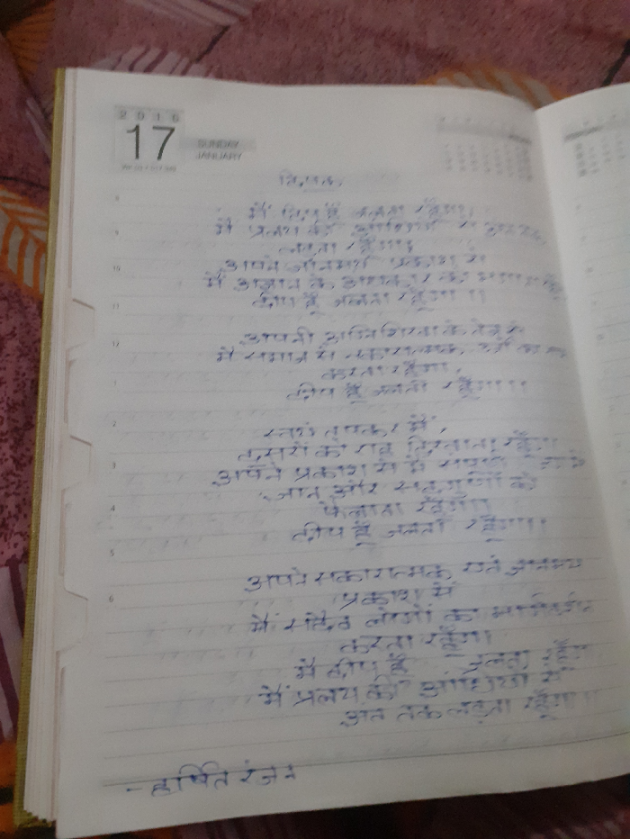 2016
17
SUNDAY
JANUARY
दीपक
मैं दीप हूँ जलता रहूँगा।
मैं प्रलय की आँधियों से
लड़ता रहूँगा।
अपने ज्ञानमयी प्रकाश से
मैं अज्ञान के अंधकार को
दीप हूँ जलता रहूँगा।।
अपनी अग्निशिखा के तेज से
मैं समाज में सकारात्मक
करता रहूँगा,
दीप हूँ जलता रहूँगा।।
स्वयं तापकर मैं,
दूसरों को राह दिखाता रहूँगा
अपने प्रकाश से मैं सम्पूर्ण
ज्ञान और सद्गुणों को
फैलाता रहूँगा।
दीप हूँ जलता रहूँगा।।
अपने सकारात्मक एवं ज्ञानमय
प्रकाश से
मैं सदैव लोगों का मार्गदर्शन
करता रहूँगा।
मैं दीप हूँ जलता रहूँगा
मैं प्रलय की आँधियों से
अंत तक लड़ता रहूँगा।।
- हर्षित रंजन